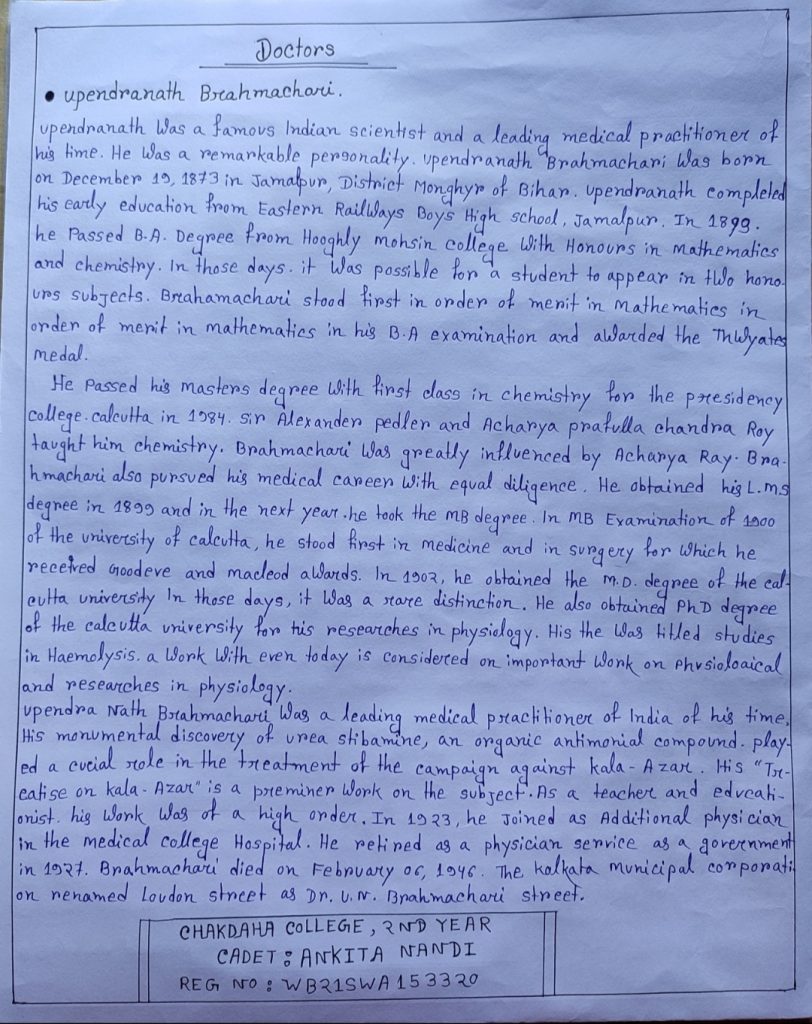 Doctors
• upendranath Brahmachari.
upendranath Was a famous Indian scientist and a leading medical practitioner of
his time. He Was a remarkable personality. upendranath Brahmachari Was born
on December 19, 1873 in Jamalpur, District Monghyr of Bihar. upendranath completed
his early education from Eastern Railways Boys High school, Jamalpur. In 1899.
he Passed B.A. Degree from Hooghly mohsin college With Honours in Mathematics
and chemistry. In those days. it Was possible for a student to appear in two hono-
urs subjects. Brahamachari stood first in order of merit in Mathematics in
order of merit in mathematics in his B.A examination and awarded the ThWyates
medal.
He Passed his masters degree With first class in chemistry for the presidency
college. calcutta in 1984. sir Alexander pedler and Acharya prafulla chandra Roy
taught him chemistry. Brahmachari Was greatly influenced by Acharya Ray. Bra-
hmachari also pursued his medical career With equal diligence. He obtained his L.M.S
degree in 1899 and in the next year. he took the MB degree. In MB Examination of 1900
of the university of calcutta, he stood first in medicine and in surgery for Which he
received Goodeve and macleod awards. In 1902, he obtained the M.D. degree of the cal-
cutta university In those days, it Was a rare distinction. He also obtained PhD degree
of the calcutta university for his researches in physiology. His the Was titled studies
in Haemolysis. a Work With even today is considered on important Work on Phvsioloaical
and researches in physiology.
upendra Nath Brahmachari Was a leading medical practitioner of India of his time,
His monumental discovery of urea stibamine, an organic antimonial compound. play-
ed a cucial role in the treatment of the campaign against kala-Azar. His "Tr-
eatise on kala-Azar" is a preminer Work on the subject. As a teacher and educati-
onist. his Work Was of a high order. In 1923, he Joined as Additional physician
in the medical college Hospital. He retired as a physician service as a government
in 1927. Brahmachari died on February 06, 1946. The kolkata municipal corporati-
on renamed Loudon street as Dr. U.N. Brahmachari street.
CHAKDAHA COLLEGE, 2ND YEAR
CADET : ANKITA NANDI
REG NO : WB21SWA153320